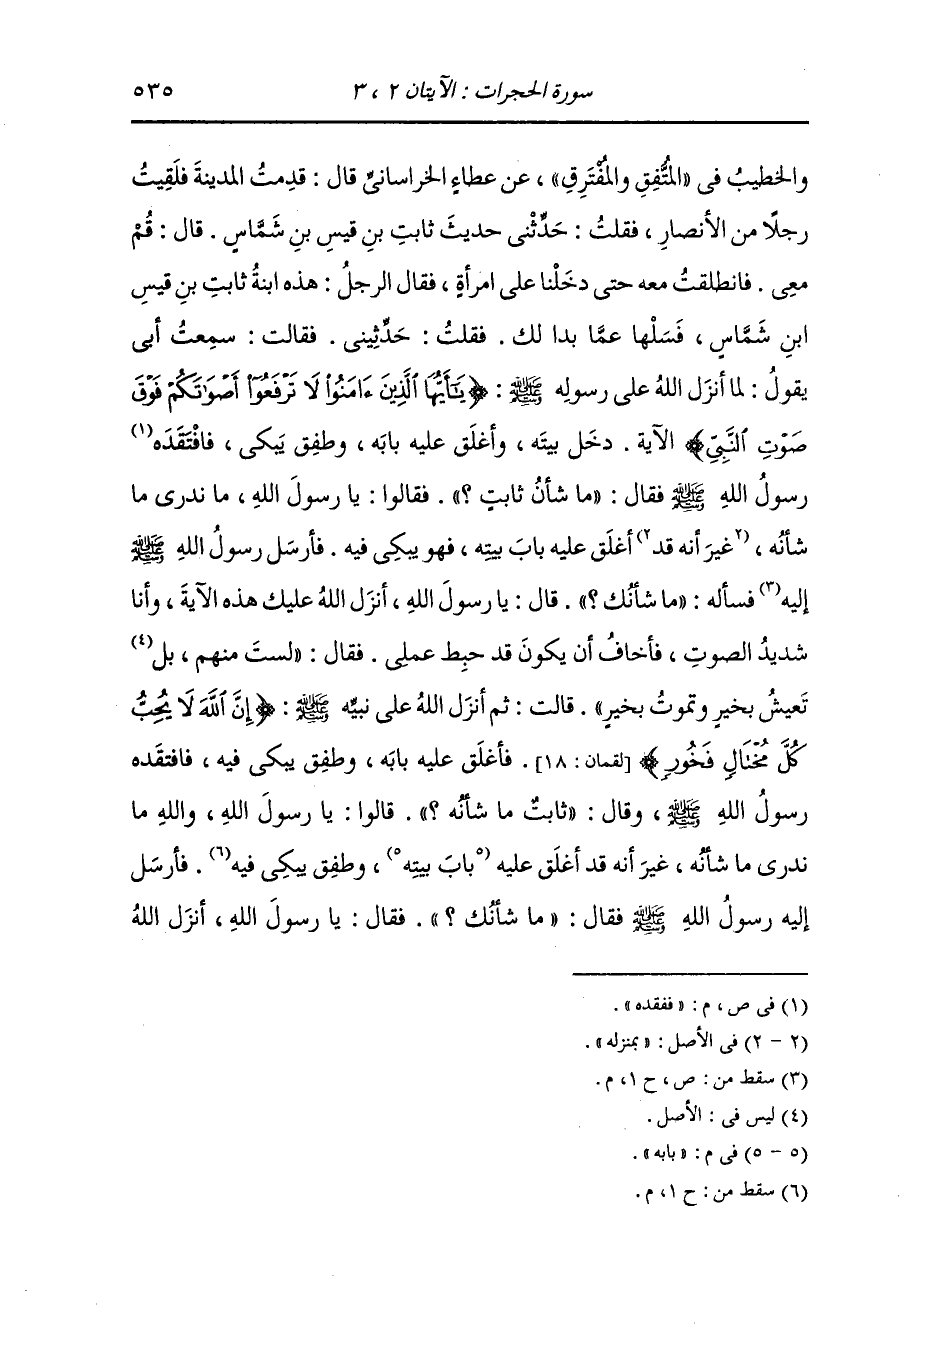 سورة الحجرات : الآيتان ٢ ، ٣ ٥٣٥
والخطيبُ فى «المُتَّفِقِ والمُفْتَرِقِ» ، عن عطاءٍ الخراسانىِّ قال : قدِمتُ المدينةَ فلَقِيتُ
رجلًا من الأنصارِ ، فقلتُ : حَدِّثْنى حديثَ ثابتِ بنِ قيسِ بنِ شَمَّاسٍ . قال : قُمْ
معِى . فانطلقتُ معه حتى دخَلْنا على امرأةٍ ، فقال الرجلُ : هذه ابنةُ ثابتِ بنِ قيسِ
ابنِ شَمَّاسٍ ، فَسَلْها عمَّا بدا لك . فقلتُ : حَدِّثِينى . فقالت : سمِعتُ أبى
يقولُ : لما أنزَل اللهُ على رسولِه ﷺ : ﴿يَٰٓأَيُّهَا ٱلَّذِينَ ءَامَنُوا۟ لَا تَرْفَعُوٓا۟ أَصْوَٰتَكُمْ فَوْقَ
صَوْتِ ٱلنَّبِىِّ﴾ الآية . دخَل بيتَه ، وأغلَق عليه بابَه ، وطفِق يَبكى ، فافْتَقَدَه(١)
رسولُ اللهِ ﷺ فقال : «ما شأنُ ثابتٍ ؟» . فقالوا : يا رسولَ اللهِ ، ما ندرى ما
شأنُه ، (٢غيرَ أنه قد٢) أغلَق عليه بابَ بيتِه ، فهو يبكِى فيه . فأرسَل رسولُ اللهِ ﷺ
إليه(٣) فسأله : «ما شأنُك ؟» . قال : يا رسولَ اللهِ ، أنزَل اللهُ عليك هذه الآيةَ ، وأنا
شديدُ الصوتِ ، فأخافُ أن يكونَ قد حبِط عملِى . فقال : «لستَ منهم ، بل(٤)
تَعيشُ بخيرٍ وتموتُ بخيرٍ» . قالت : ثم أنزَل اللهُ على نبيِّه ﷺ : ﴿إِنَّ ٱللَّهَ لَا يُحِبُّ
كُلَّ مُخْتَالٍ فَخُورٍ﴾ [لقمان : ١٨] . فأغلَق عليه بابَه ، وطفِق يبكى فيه ، فافتقَده
رسولُ اللهِ ﷺ ، وقال : «ثابتٌ ما شأنُه ؟» . قالوا : يا رسولَ اللهِ ، واللهِ ما
ندرى ما شأنُه ، غيرَ أنه قد أغلَق عليه (٥بابَ بيتِه٥) ، وطفِق يبكِى فيه(٦) . فأرسَل
إليه رسولُ اللهِ ﷺ فقال : « ما شأنُك ؟ » . فقال : يا رسولَ اللهِ ، أنزَل اللهُ
(١) فى ص ، م : « ففقده » .
(٢ - ٢) فى الأصل : « بمنزله » .
(٣) سقط من : ص ، ح ١ ، م .
(٤) ليس فى : الأصل .
(٥ - ٥) فى م : « بابه » .
(٦) سقط من : ح ١ ، م .